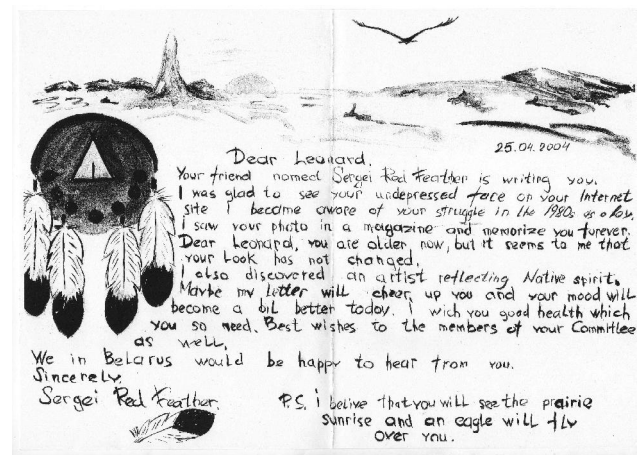 25.04.2004
Dear Leonard.
Your friend nomed Sergei Red Feather is writing you.
I was glad to see your undepressed face on your Internet
site I become aware of your struggle in the 1980s as a boy.
I saw your photo in a magazine and memorize you forever.
Dear Leonard, you are older now, but it seems to me that
your Look has not changed.
I also discovered an artist reflecting Native spirit.
Maybe my letter will cheer up you and your mood will
become a bit better today. I wich you good health which
you so need. Best wishes to the members of your Committee
as well.
We in Belarus would be happy to hear from you.
Sincerely.
Sergei Red Feather.
P.S. i belive that you will see the prairie
sunrise and an eagle will fly
over you.